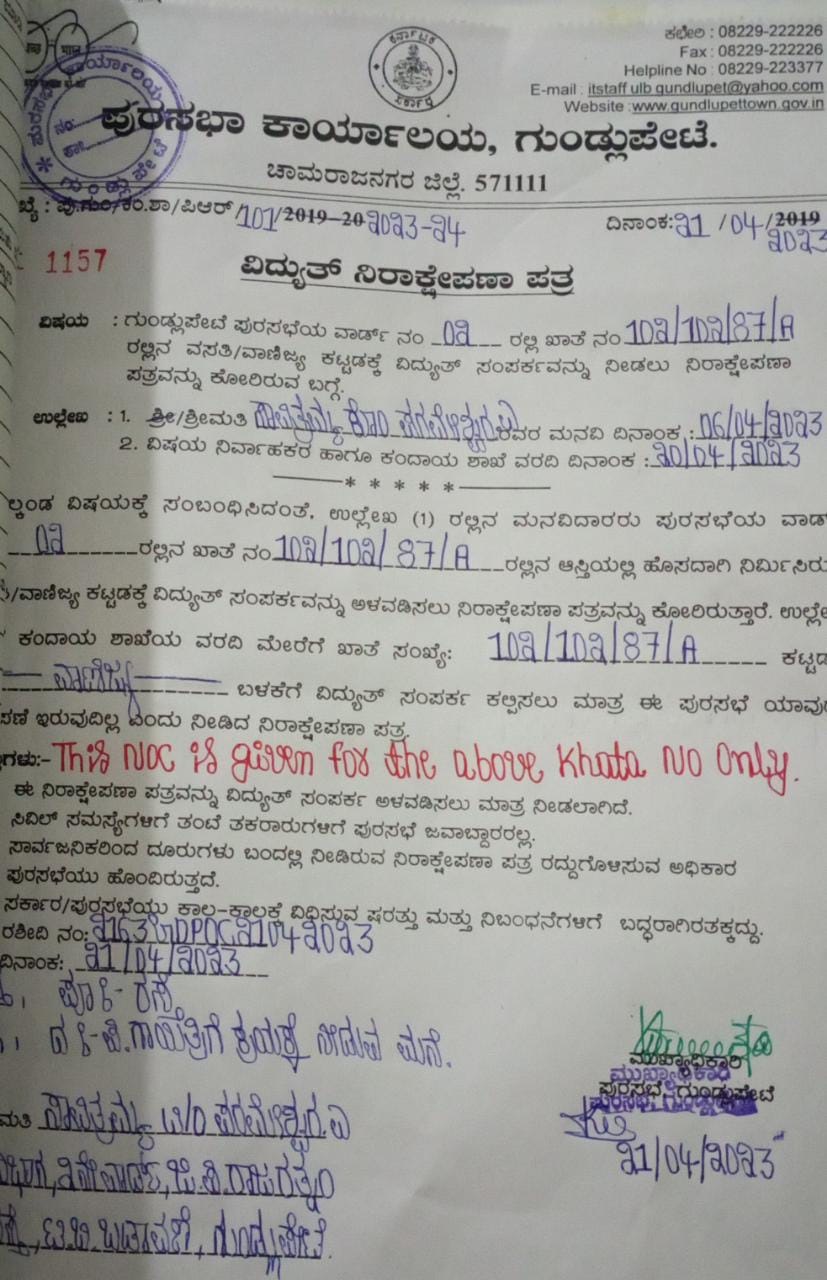 ಕಛೇರಿ : 08229-222226
Fax : 08229-222226
Helpline No : 08229-223377
E-mail : itstaff ulb gundlupet@yahoo.com
Website : www.gundlupettown.gov.in
ಪುರಸಭಾ ಕಾರ್ಯಾಲಯ, ಗುಂಡ್ಲುಪೇಟೆ.
ಚಾಮರಾಜನಗರ ಜಿಲ್ಲೆ. 571111
ಖ್ಯೆ : ಪು.ಗುಂ/ಕಂ.ಶಾ/ಪಿಆರ್/101/2019-20 2023-24 ದಿನಾಂಕ: 21/04/2019 2023
1157
ವಿದ್ಯುತ್ ನಿರಾಕ್ಷೇಪಣಾ ಪತ್ರ
ವಿಷಯ : ಗುಂಡ್ಲುಪೇಟೆ ಪುರಸಭೆಯ ವಾರ್ಡ್ ನಂ 02 ರಲ್ಲಿ ಖಾತೆ ನಂ 102/102/87/A
ರಲ್ಲಿನ ವಸತಿ/ವಾಣಿಜ್ಯ ಕಟ್ಟಡಕ್ಕೆ ವಿದ್ಯುತ್ ಸಂಪರ್ಕವನ್ನು ನೀಡಲು ನಿರಾಕ್ಷೇಪಣಾ
ಪತ್ರವನ್ನು ಕೋರಿರುವ ಬಗ್ಗೆ.
ಉಲ್ಲೇಖ : 1. ಶ್ರೀ/ಶ್ರೀಮತಿ ಸಾವಿತ್ರಮ್ಮ ಕೋಂ ಪರಮೇಶ್ವರ.ಎ ರವರ ಮನವಿ ದಿನಾಂಕ : 06/04/2023
2. ವಿಷಯ ನಿರ್ವಾಹಕರ ಹಾಗೂ ಕಂದಾಯ ಶಾಖೆ ವರದಿ ದಿನಾಂಕ : 20/04/2023
* * * * *
ಲ್ಕಂಡ ವಿಷಯಕ್ಕೆ ಸಂಬಂಧಿಸಿದಂತೆ, ಉಲ್ಲೇಖ (1) ರಲ್ಲಿನ ಮನವಿದಾರರು ಪುರಸಭೆಯ ವಾರ್ಡ
02 ರಲ್ಲಿನ ಖಾತೆ ನಂ 102/102/87/A ರಲ್ಲಿನ ಆಸ್ತಿಯಲ್ಲಿ ಹೊಸದಾಗಿ ನಿರ್ಮಿಸಿರು
/ವಾಣಿಜ್ಯ ಕಟ್ಟಡಕ್ಕೆ ವಿದ್ಯುತ್ ಸಂಪರ್ಕವನ್ನು ಅಳವಡಿಸಲು ನಿರಾಕ್ಷೇಪಣಾ ಪತ್ರವನ್ನು ಕೋರಿರುತ್ತಾರೆ. ಉಲ್ಲೇ
ಕಂದಾಯ ಶಾಖೆಯ ವರದಿ ಮೇರೆಗೆ ಖಾತೆ ಸಂಖ್ಯೆ: 102/102/87/A ಕಟ್ಟಡ
ವಾಣಿಜ್ಯ ಬಳಕೆಗೆ ವಿದ್ಯುತ್ ಸಂಪರ್ಕ ಕಲ್ಪಿಸಲು ಮಾತ್ರ ಈ ಪುರಸಭೆ ಯಾವು
ಪಣೆ ಇರುವುದಿಲ್ಲ ಎಂದು ನೀಡಿದ ನಿರಾಕ್ಷೇಪಣಾ ಪತ್ರ.
ಗಳು:- This NOC is given for the above Khata No Only.
ಈ ನಿರಾಕ್ಷೇಪಣಾ ಪತ್ರವನ್ನು ವಿದ್ಯುತ್ ಸಂಪರ್ಕ ಅಳವಡಿಸಲು ಮಾತ್ರ ನೀಡಲಾಗಿದೆ.
ಸಿವಿಲ್ ಸಮಸ್ಯೆಗಳಿಗೆ ತಂಟೆ ತಕರಾರುಗಳಿಗೆ ಪುರಸಭೆ ಜವಾಬ್ದಾರರಲ್ಲ.
ಸಾರ್ವಜನಿಕರಿಂದ ದೂರುಗಳು ಬಂದಲ್ಲಿ ನೀಡಿರುವ ನಿರಾಕ್ಷೇಪಣಾ ಪತ್ರ ರದ್ದುಗೊಳಿಸುವ ಅಧಿಕಾರ
ಪುರಸಭೆಯು ಹೊಂದಿರುತ್ತದೆ.
ಸರ್ಕಾರ/ಪುರಸಭೆಯು ಕಾಲ-ಕಾಲಕ್ಕೆ ವಿಧಿಸುವ ಷರತ್ತು ಮತ್ತು ನಿಬಂಧನೆಗಳಿಗೆ ಬದ್ಧರಾಗಿರತಕ್ಕದ್ದು.
ರಶೀದಿ ನಂ:
ದಿನಾಂಕ: 21/04/2023
ಪೂ
ರಸ್ತೆ
ನೀಡುವ ಮನೆ.
ಮುಖ್ಯಾಧಿಕಾರಿ
ಪುರಸಭೆ, ಗುಂಡ್ಲುಪೇಟೆ
21/04/2023
ಮತಿ ಸಾವಿತ್ರಮ್ಮ W/o ಪರಮೇಶ್ವರ.ಎ
ಗುಂಡ್ಲುಪೇಟೆ.